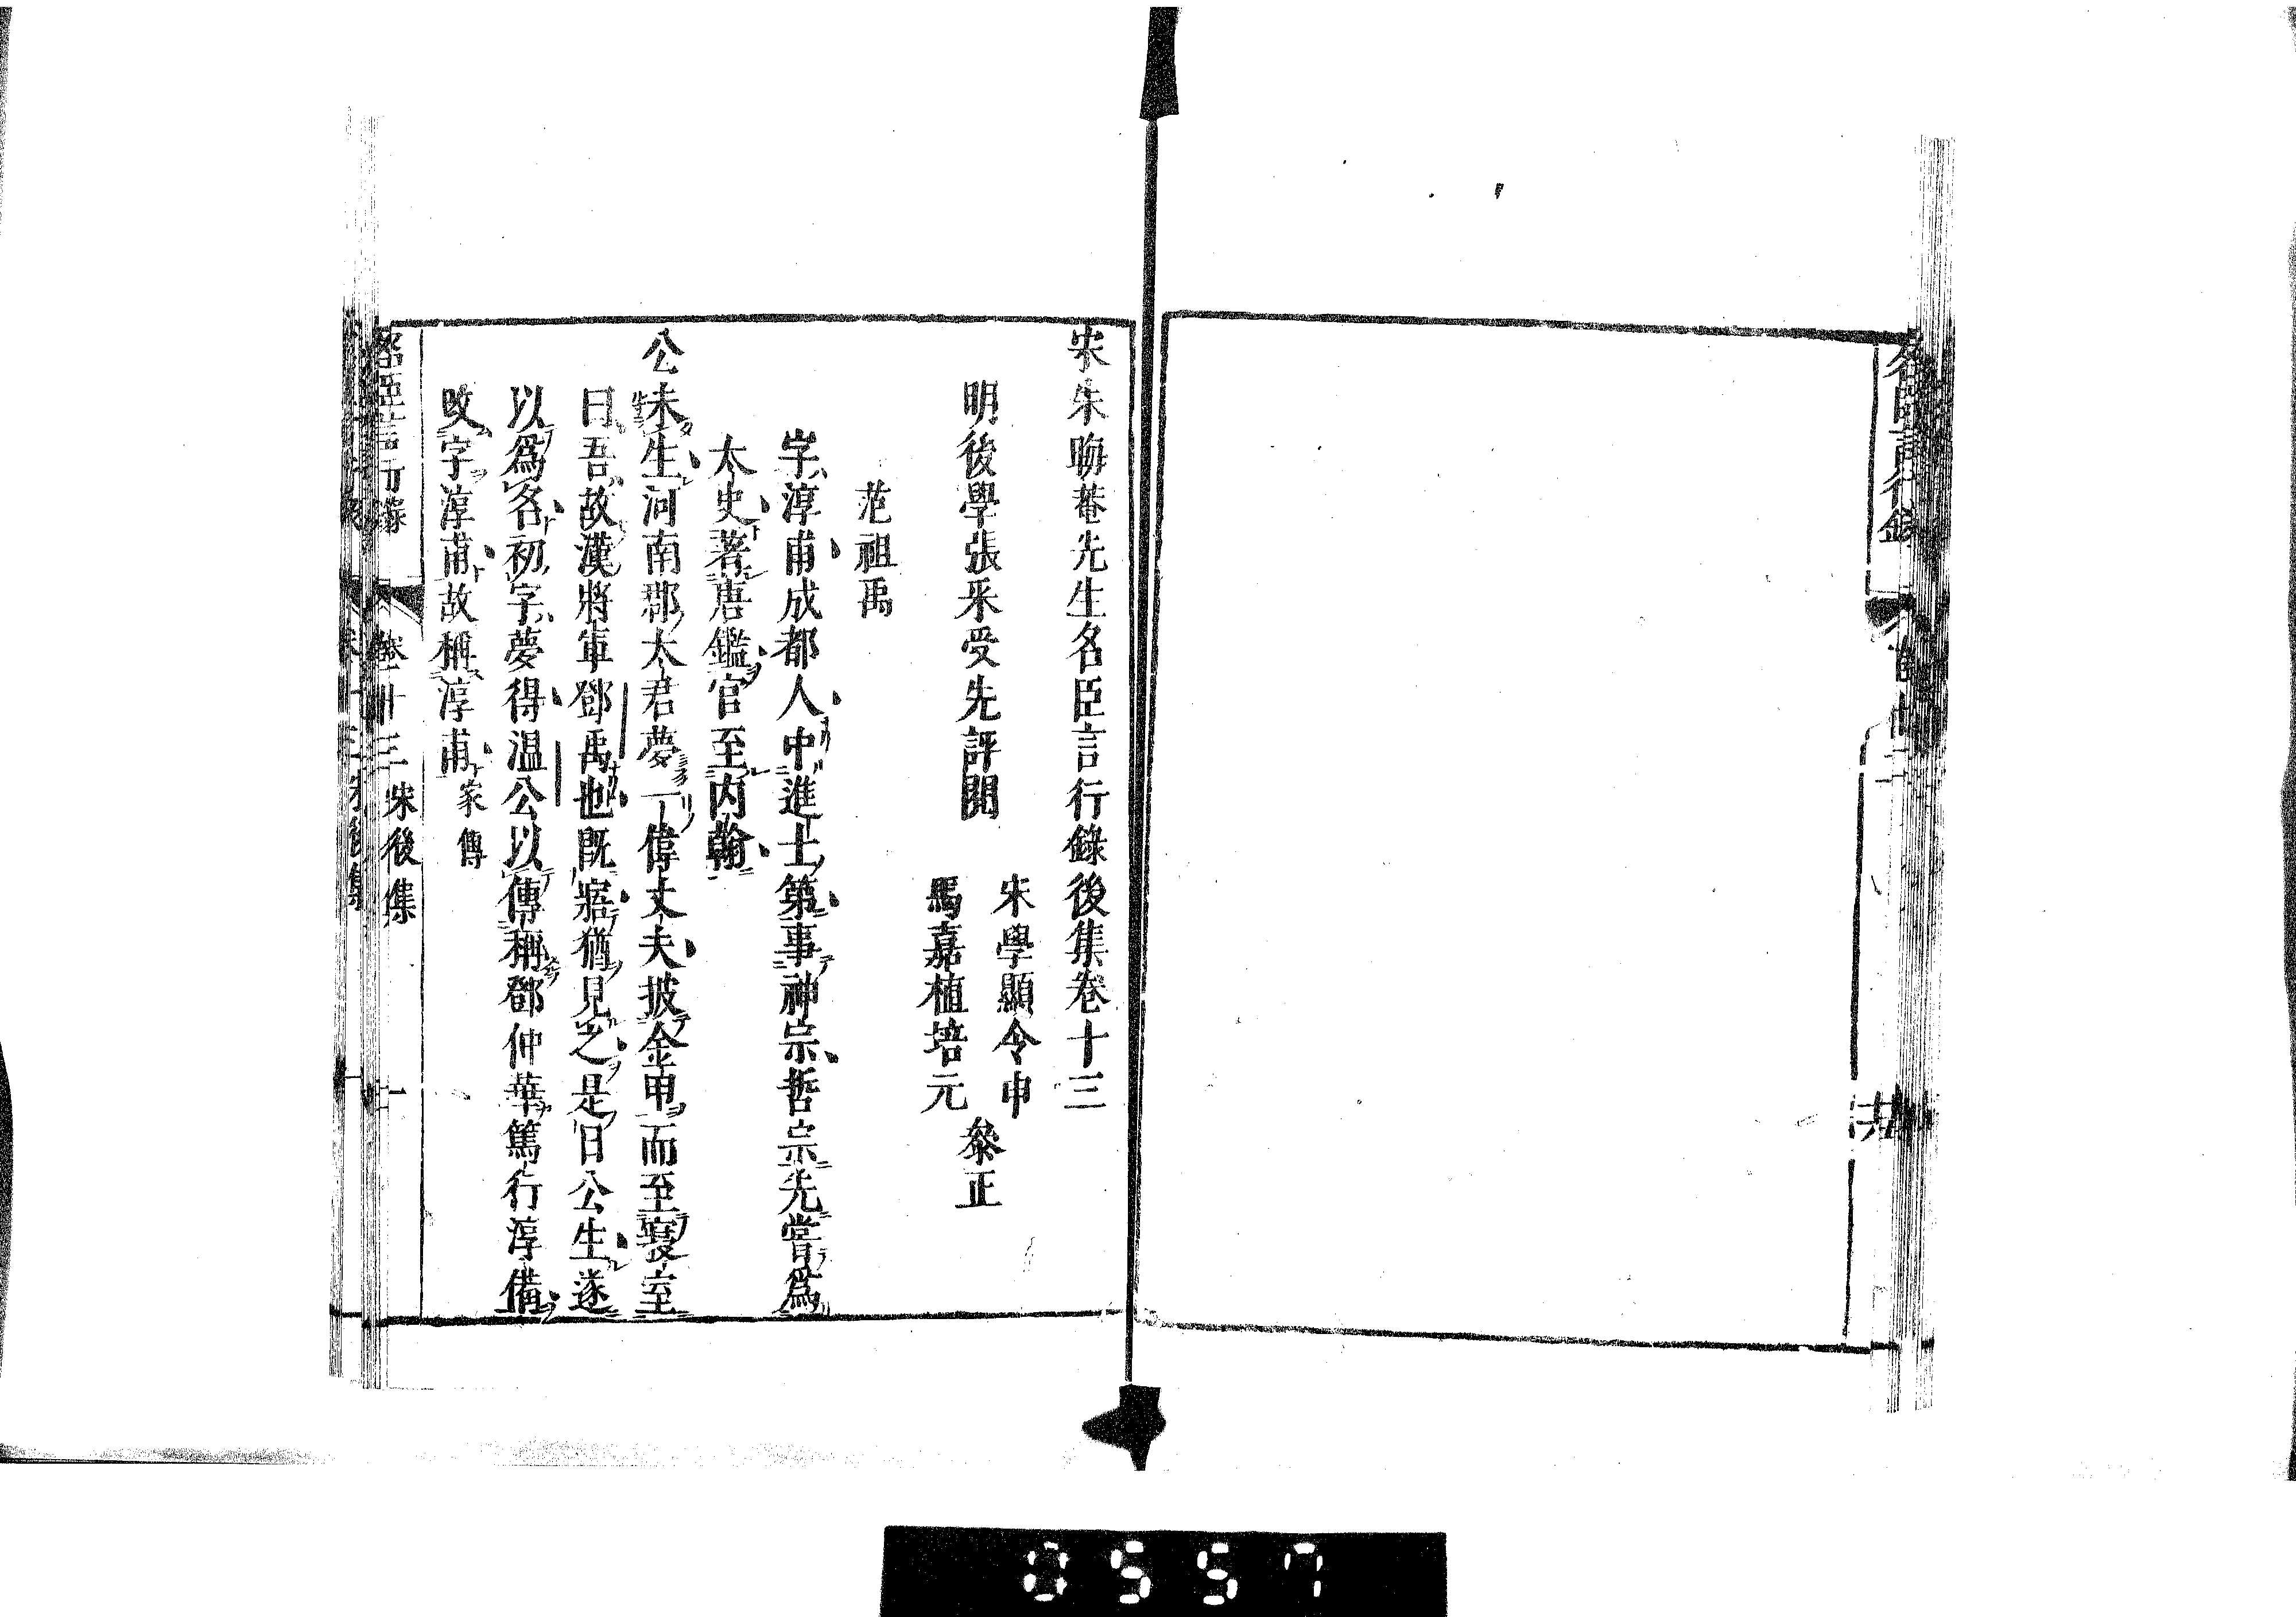 名臣言行錄
宋朱晦菴先生名臣言行錄後集卷十三
宋學顯令申
明後學張采受先評閱
馬嘉植培元
叅正
范祖禹
字淳甫成都人中進士第事神宗哲宗先嘗爲
太史著唐鑑官至内翰
公未生河南郡太君夢一偉丈夫披金甲而至寢室
曰吾故漢將軍鄧禹也既寤猶見之是日公生遂
以爲名初字夢得温公以傳稱鄧仲華篤行淳備
改字淳甫故稱淳甫家傳
名臣言行錄 卷十三 宋後集 一
0557